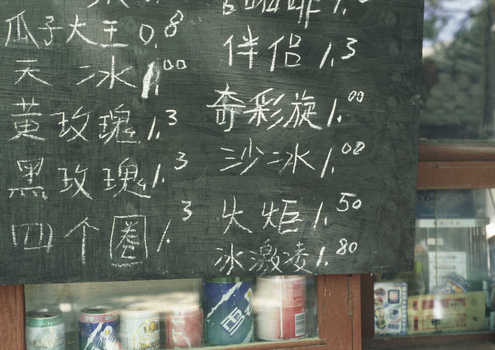 瓜子大王 0.8
天冰 1.00
黄玫瑰 1.3
黑玫瑰 1.3
四个圈 1.3
咖啡 1.
伴侣 1.3
奇彩旋 1.00
沙冰 1.00
火炬 1.50
冰激凌 1.80